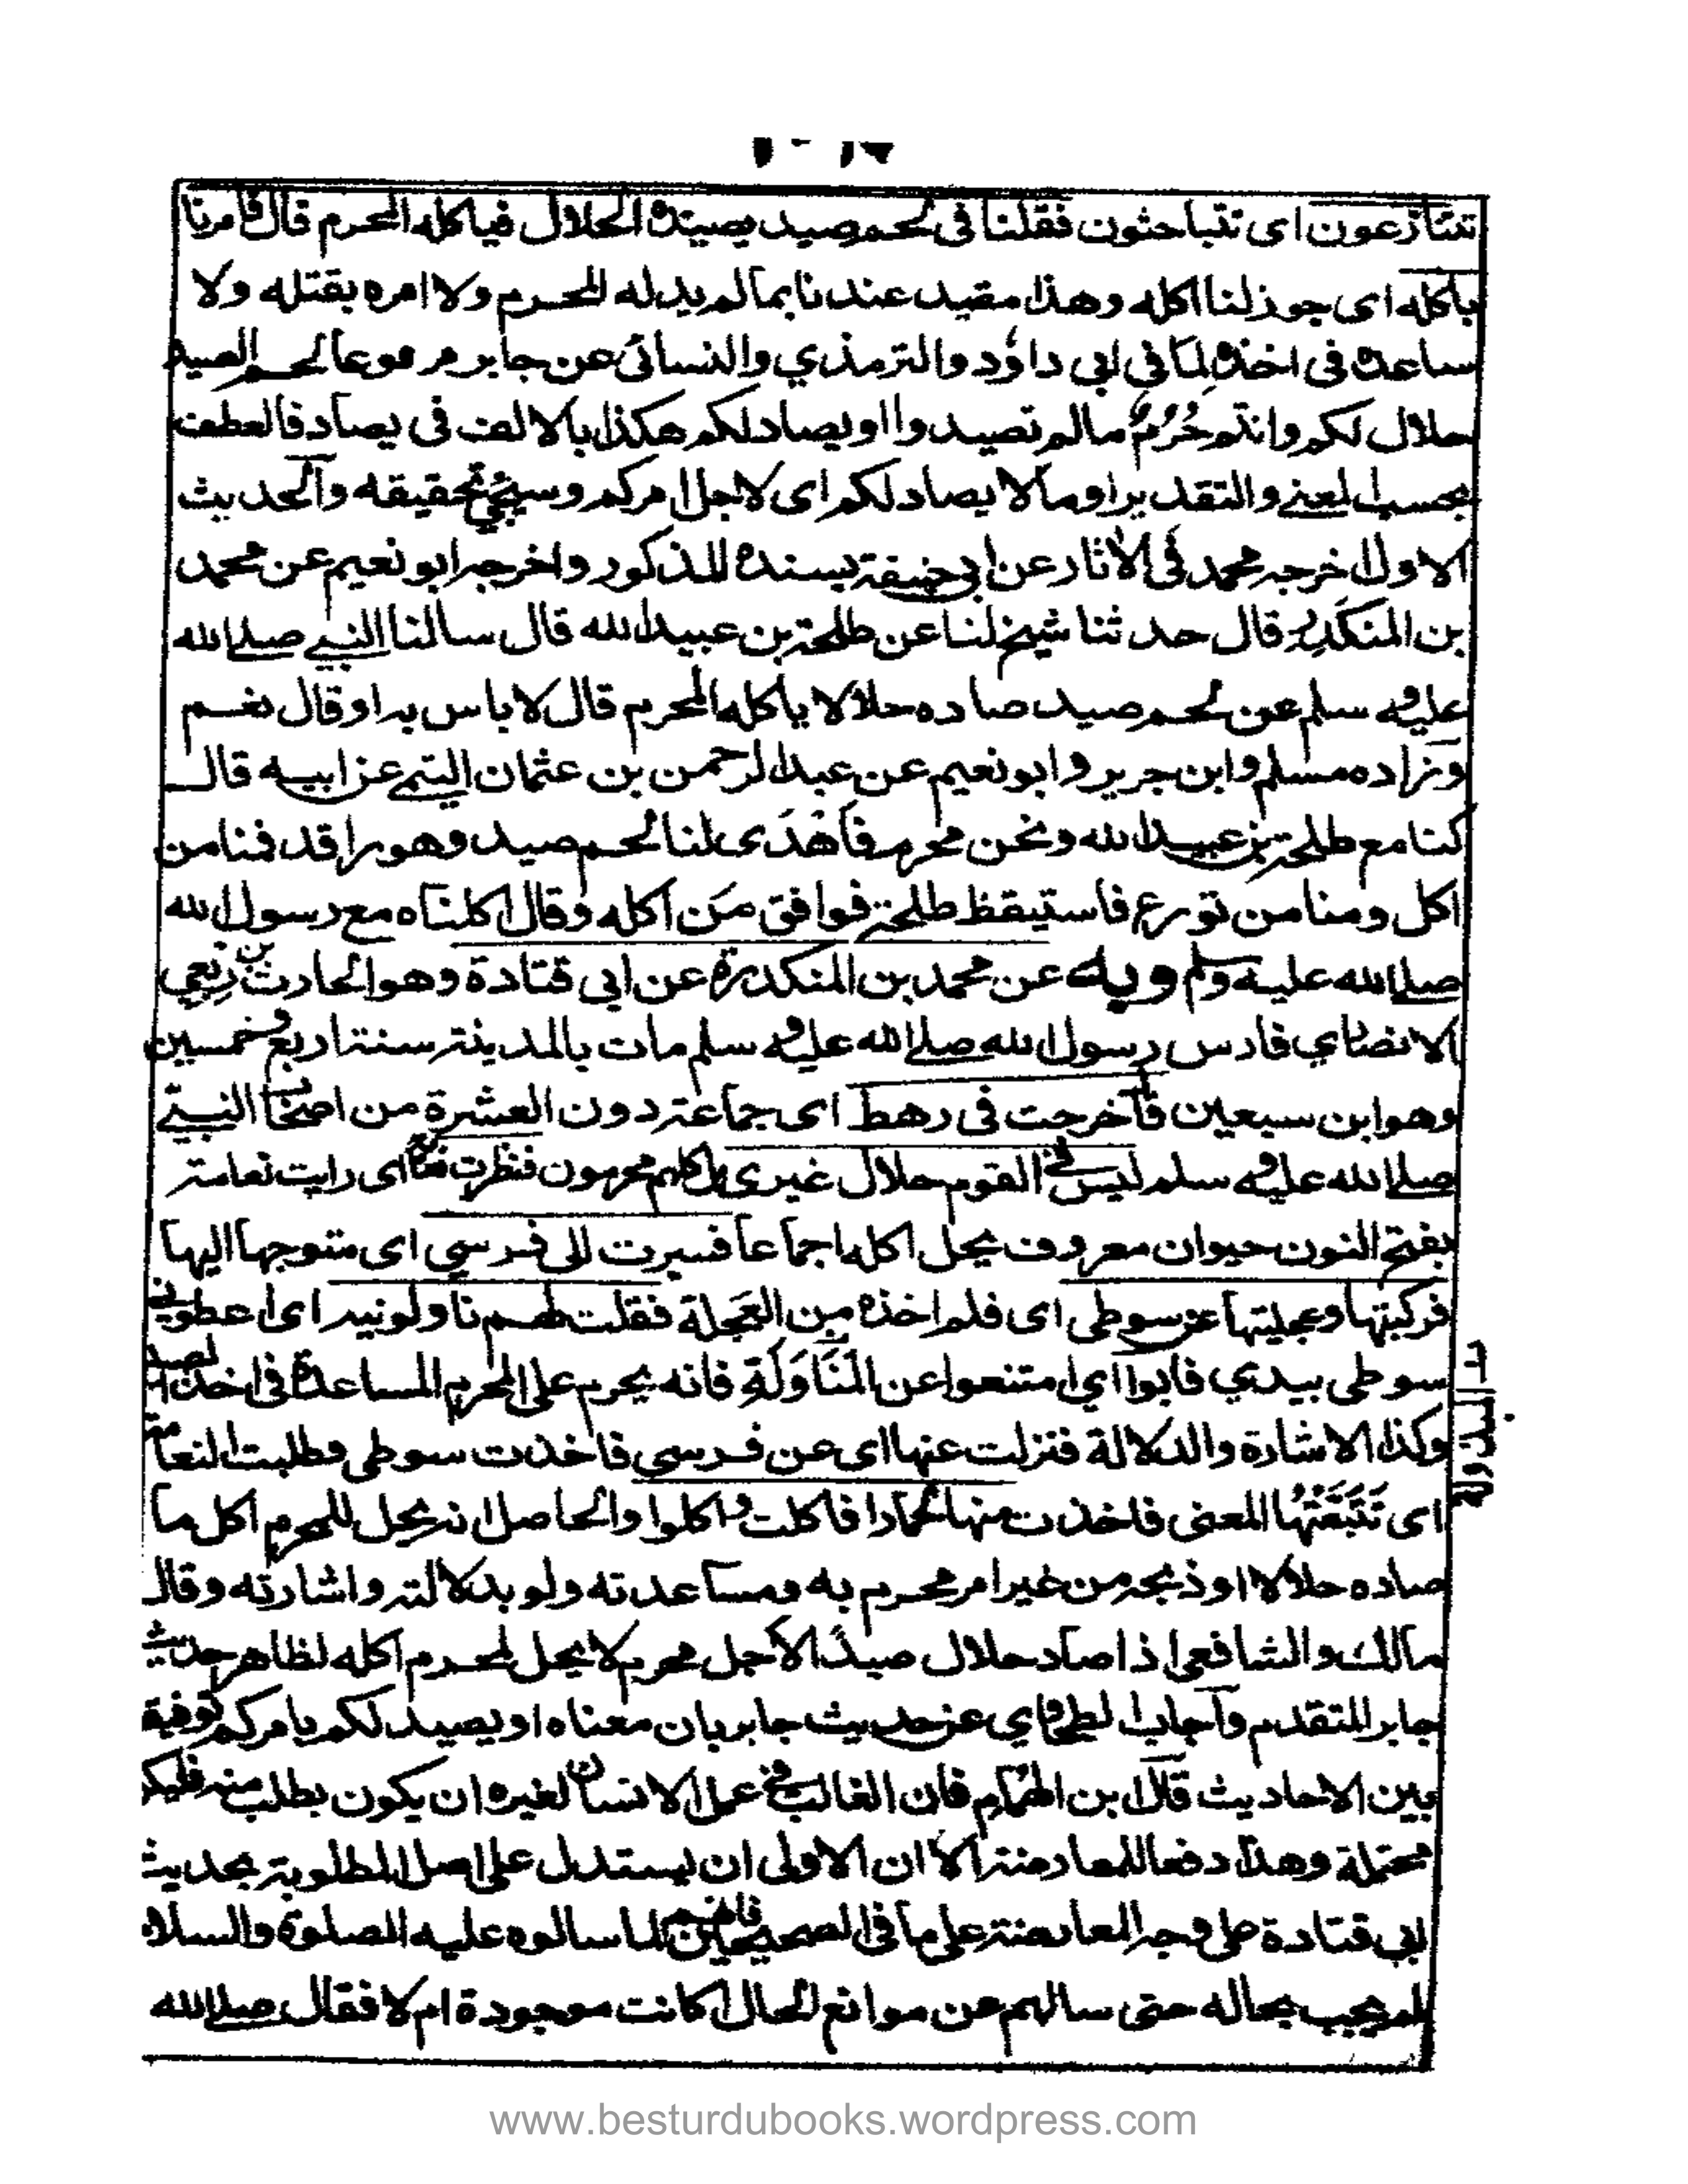 تتنازعون اى تتباحثون فقلنا فى لحم صيد يصيده الحلال فياكله المحرم قال فامرنا
باكله اى جوز لنا اكله وهذا مقيد عندنا بما لم يدله المحرم ولا امره بقتله ولا
ساعده فى اخذه لِمَا في ابي داؤد والترمذي والنسائى عن جابر مرفوعا لحم الصيد
حلال لكم وانتم حُرُمٌ مالم تصيدوا او يصاد لكم هكذا بالالف فى يصاد فالعطف
بحسب المعنى والتقدير او مالا يصاد لكم اى لاجل امركم وسيجئ تحقيقه والحديث
الاول اخرجه محمد فى الاثار عن ابي حنيفة بسنده المذكور واخرجه ابو نعيم عن محمد
بن المنكدر قال حدثنا شيخ لنا عن طلحة بن عبيد الله قال سالنا النبي صلى الله
عليه وسلم عن لحم صيد صاده حلال لا ياكله المحرم قال لا باس به او قال نعم
وزاده مسلم وابن جرير وابو نعيم عن عبد الرحمن بن عثمان التيمي عن ابيه قال
كنا مع طلحة بن عبيد الله ونحن محرم فأهْدَى لنا لحم صيد وهو راقد فمنا من
اكل ومنا من تورع فاستيقظ طلحة فوافق مَن اكله وقال اكلناه مع رسول الله
صلى الله عليه وسلم وبه عن محمد بن المنكدرة عن ابي قتادة وهو الحارث بن رِبعي
الانصاري فارس رسول الله صلى الله عليه وسلم مات بالمدينة سنة اربع وخمسين
وهو ابن سبعين قال خرجت فى رهط اى جماعة دون العشرة من اصحاب النبي
صلى الله عليه وسلم ليس فى القوم حلال غيرى بل كلهم محرمون فنظرت نعامة اى رايت نعامة
بفتح النون حيوان معروف يحل اكله اجماعا فسرت الى فرسي اى متوجها اليها
فركبتها وعجلتها عن سوطى اى فلم اخذه مِن العَجلة فقلت لهم ناولونيه اى اعطونى
سوطى بيدي فابوا اي امتنعوا عن المُنَاوَلَةِ فانه يحرم على المحرم المساعدة فى اخذ الصيد
وكذا الاشارة والدلالة فنزلت عنها اى عن فرسي فاخذت سوطى وطلبت النعامة
اى تَتَبَّعْتُها المعنى فاخذت منها حمارا فاكلت واكلوا والحاصل انه يحل للمحرم اكل ما
صاده حلال او ذبحه من غير امر محرم به ومساعدته ولو بدلالته واشارته وقال
مالك والشافعى اذا صاد حلال صيدًا لاجل محرم لا يحل لمحرم اكله لظاهر حديث
جابر المتقدم واجاب الطحاوي عن حديث جابر بان معناه او يصيد لكم بامركم توفيقا
بين الاحاديث قال ابن الهُمَام فان الغالب في عمل الانسان لغيره ان يكون بطلب منه فليكن
محتملة وهذا دفعا للمعارضة الا ان الاولى ان يستدل على اصل المطلوبة بحديث
ابي قتادة على وجه المعارضة على ما فى الصحيحين فانهم لما سالوه عليه الصلوة والسلام
لم يجب بحاله حتى سالهم عن موانع الحال اكانت موجودة ام لا فقال صلى الله
www.besturdubooks.wordpress.com